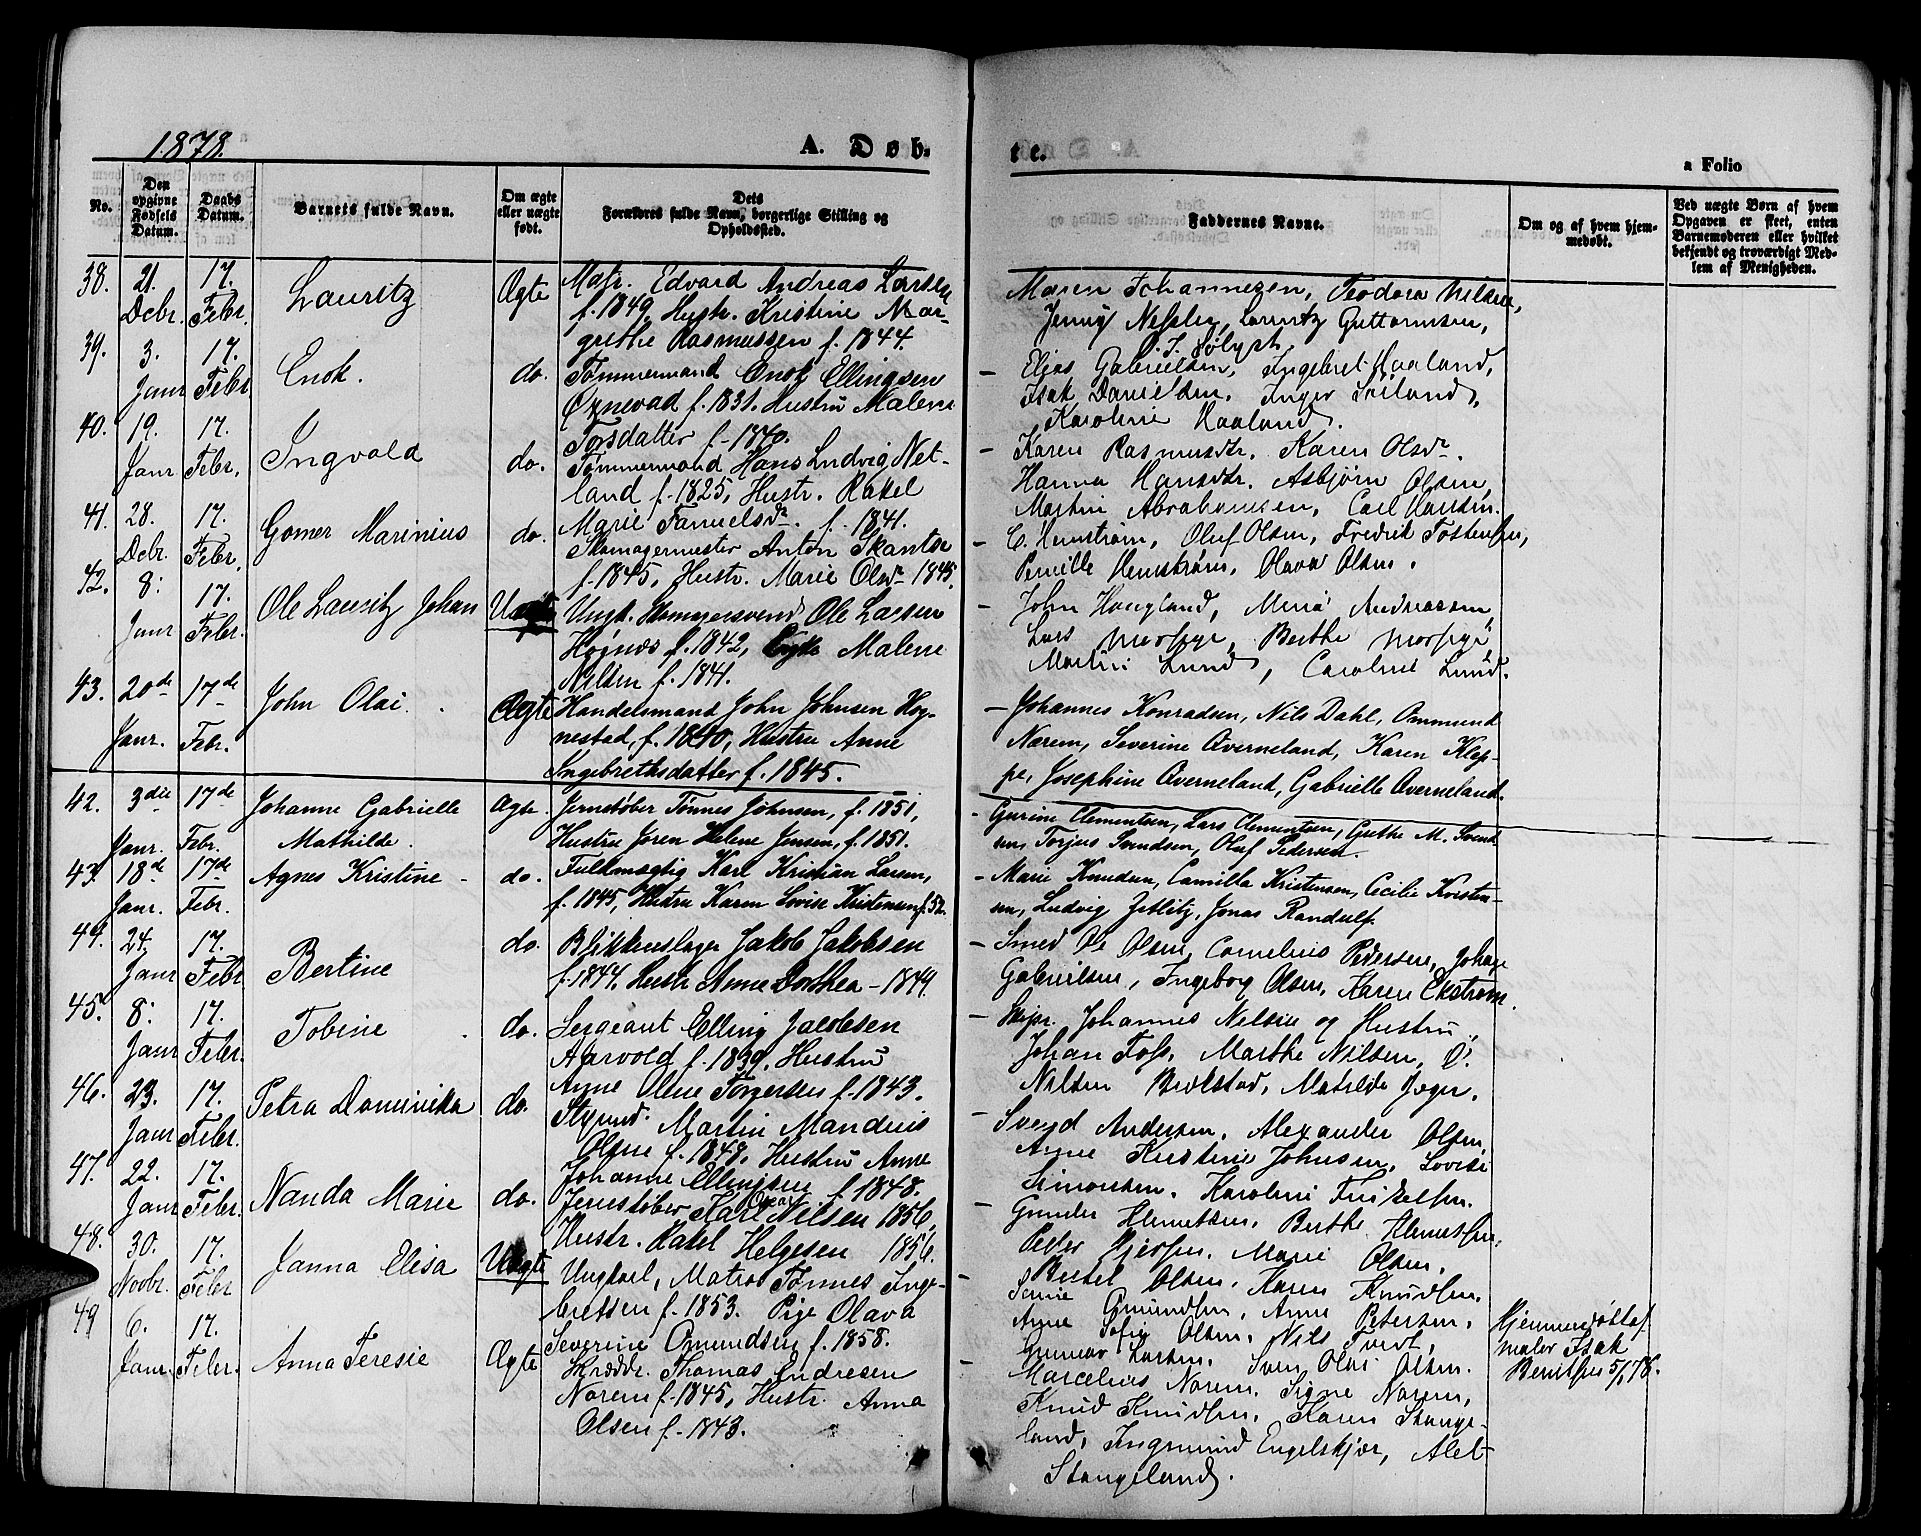 1878.
A. Døb-
te.
a Folio
No.
Den opgivne Fødsels Datum.
Daabs Datum.
Barnets fulde Navn.
Om ægte eller uægte født.
Dets Forældres fulde Navn, borgerlige Stilling og Opholdssted.
Faddernes Navne.
Om og af hvem hjemmedøbt.
Ved uægte Børn af hvem Opgaven er skeet, enten Barnemoderen eller hvilket bekjendt og troværdigt Medlem af Menigheden.
38. 21. Debr. 17. Febr. Lauritz Ægte
Matr. Edvard Andreas Larsen
f. 1849, Hustr. Kristine Mar-
grethe Rasmussen f. 1844.
Maren Johannesen, Teodora Nilsen,
Jenny Lauritz Guttormsen,
39. 3. Janr 17. Febr Enok. do.
Tømmermand Enok Ellingsen
Øxnevad f. 1831. Hustrü Malene
Torsdatter f. 1840.
– Elias Gabrielsen, Ingebret Haaland,
Isak Danielsen, Inger
Karoline Haaland.
40. 19. Janr 17. Febr. Ingvald do.
Tømmermand Hans Ludvig Net-
land f. 1825, Hustr. Rakel
Marie f. 1841.
– Karen Rasmusdtr. Karen Olsdr.
Hanna Hansdtr. Asbjørn Olsen,
Martin Abrahamsen, Carl Hansen.
41. 28. Debr. 17. Febr. Gomer Marinius do.
Skomagermester Anton Skantse
f. 1845, Hustr. Marie Olsdr 1845.
– C. Hemstrøm, Oluf Olsen, Fredrik
Pernille Hemstrøm, Olava Olsen.
42. 8. Janr 17. Febr. Ole Lauritz Johan Uægte
Ungk. Ole Larsen
Højnæs f. 1842, Malene
Nilsen f. 1841.
– John Haugland, Andreassen
Lars Berthe
Martin Lund, Caroline Lund.
43. 20de Janr. 17de Febr. John Olai. Ægte
Handelsmand John Johnsen Hog-
nestad, f. 1840, Hustru Anne
Ingebrethsdatter f. 1845.
– Johannes Konradsen, Nils Dahl, Ommund
Nærem, Severine Qverneland, Karen Klep-
pe, Josephine Qverneland, Gabrielle Qverneland.
42. 3die Janr. 17de Febr. Johanne Gabrielle Mathilde. Ægte.
Jernstøber Tønnes Johnsen, f. 1851,
Hustru Joren Helene Jensen, f. 1851.
– Gurine Clementsen, Lars Clementsen, Grethe M. Svend
sen, Torjus Svendsen, Oluf Pedersen.
43. 18de Janr. 17de Febr. Agnes Kristine do.
Fuldmægtig Karl Kristian Larsen,
f. 1845, Hustru Karen Lovise Kristensen f. 52.
– Marie Knudsen, Camilla Kristensen, Cecilie Kristen-
sen, Ludvig Zetlitz, Jonas Randulf.
44. 24. Janr 17. Febr Bertine do.
Blikkenslager Jakob Jakobsen
f. 1844, Hustr Anne Dorthea – 1849.
– Smed Ole Olsen, Cornelius Pedersen, Johan
Gabrielsen, Ingeborg Olsen, Karen Ekstrøm.
45. 8. Janr 17. Febr. Tobine do.
Sergeant Elling Jacobsen
Aarvold f. 1839, Hustrü
Anne Oline Torgersen f. 1843.
– Skipr. Johannes Nilsen og Hustrü,
Johan Foss, Marthe Nilsen,
Nilsen Matilde Jæger.
46. 23. Janr 17. Febr. Petra Dominika do.
Martin Mandius
Olsen f. 1848, Hustrü Anne
Johanne Ellingsen f. 1848.
– Svend Andersen, Alexander Olsen,
Anne Kristine Johnsen, Lovise
Simonsen, Karoline
47. 22. Janr 17. Febr. Nanda Marie do.
Jernstøber Karl Oskar Nilsen 1856,
Hustr. Rakel Helgesen 1856.
Gunder Berthe
Peder Marie Olsen,
Bertel Olsen, Karen Knudsen.
48. 30. Novbr. 17. Febr Janna Elisa Uægte
Ungkarl, Matros Tønnes Inge-
bretsen f. 1853. Pige Olava
Severine Omundsen f. 1858.
– Omundsen, Anne Petersen,
Anne Sofie Olsen, Nils Tvedt,
Gunnar Larsen, Sven Olai Olsen.
49 6. Janr. 17. Febr. Anna Teresie Ægte
Skrædder. Thomas Endresen
Norem f. 1845, Hustr. Anna
Olsen f. 1843.
– Marcelius Norem, Signe Norem,
Knud Knudsen, Karen Stange-
land, Ingmund Engelskjær, Alet
Stangeland.
Hjemmedøbt af
maler Isak
Berntsen 5/1 78.